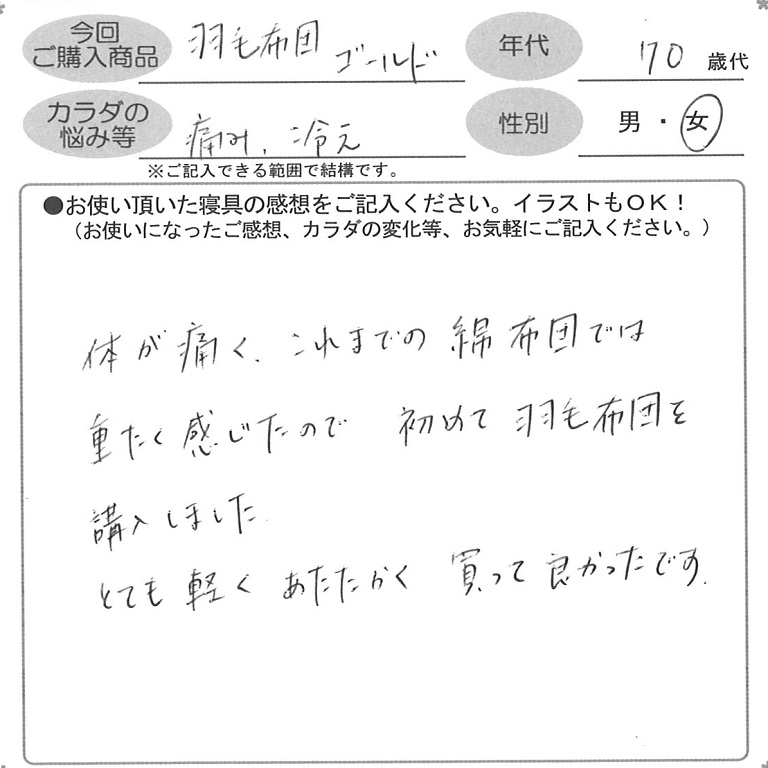 今回
ご購入商品
羽毛布団 ゴールド
年代
70 歳代
カラダの
悩み等
痛み、冷え
性別
男 ・ 女
※ご記入できる範囲で結構です。
●お使い頂いた寝具の感想をご記入ください。イラストもOK！
（お使いになったご感想、カラダの変化等、お気軽にご記入ください。）
体が痛く、これまでの綿布団では
重たく感じたので 初めて羽毛布団を
講入しました。
とても軽くあたたかく 買って良かったです。